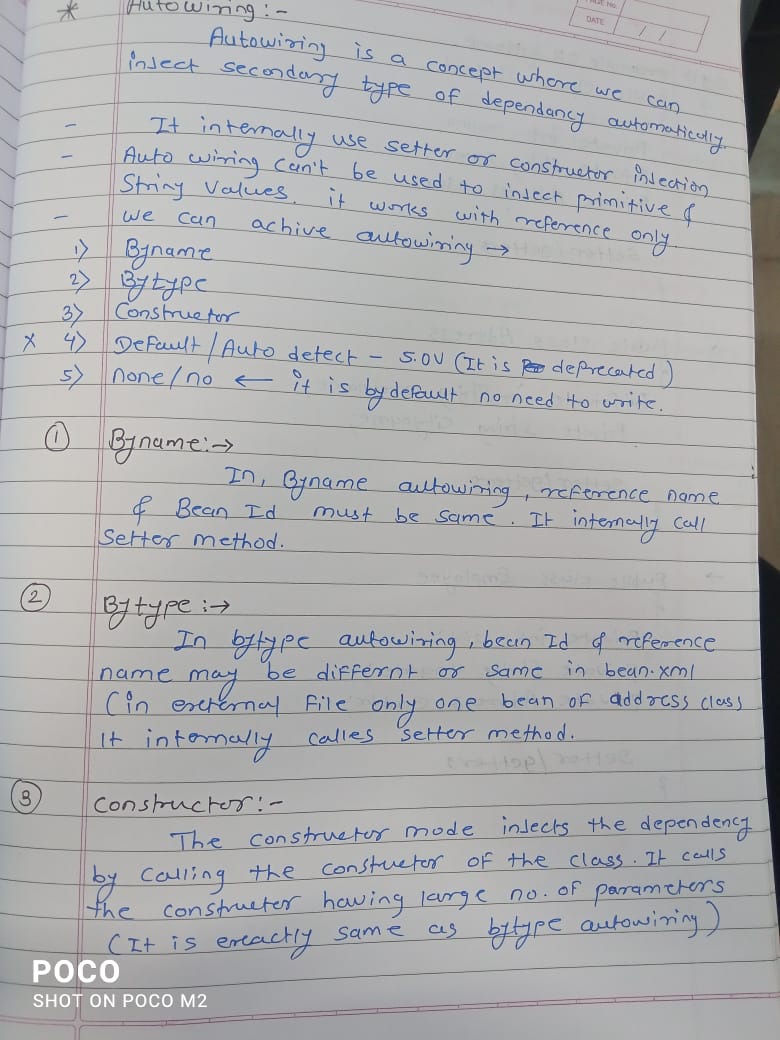 PAGE No.
DATE / /
* Autowiring :-
Autowiring is a concept where we can
inject secondary type of dependancy automatically.
- It internally use setter or constructor injection
- Auto wiring can't be used to inject primitive &
String values. it works with reference only.
- we can achive autowiring →
1) Byname
2) Bytype
3) Constructor
x 4) Default / Auto detect - 5.0V (It is deprecated)
5) none/no ← it is by default no need to write.
① Byname :→
In, Byname autowiring, reference name
& Bean Id must be same. It internally call
setter method.
② Bytype :→
In bytype autowiring, bean Id & reference
name may be differnt or same in bean.xml
(in external file only one bean of address class
It internally calles setter method.
③ Constructor :-
The constructor mode injects the dependency
by calling the constuctor of the class. It calls
the constructor having large no. of parameters
(It is exactly same as bytype autowiring)
POCO
SHOT ON POCO M2